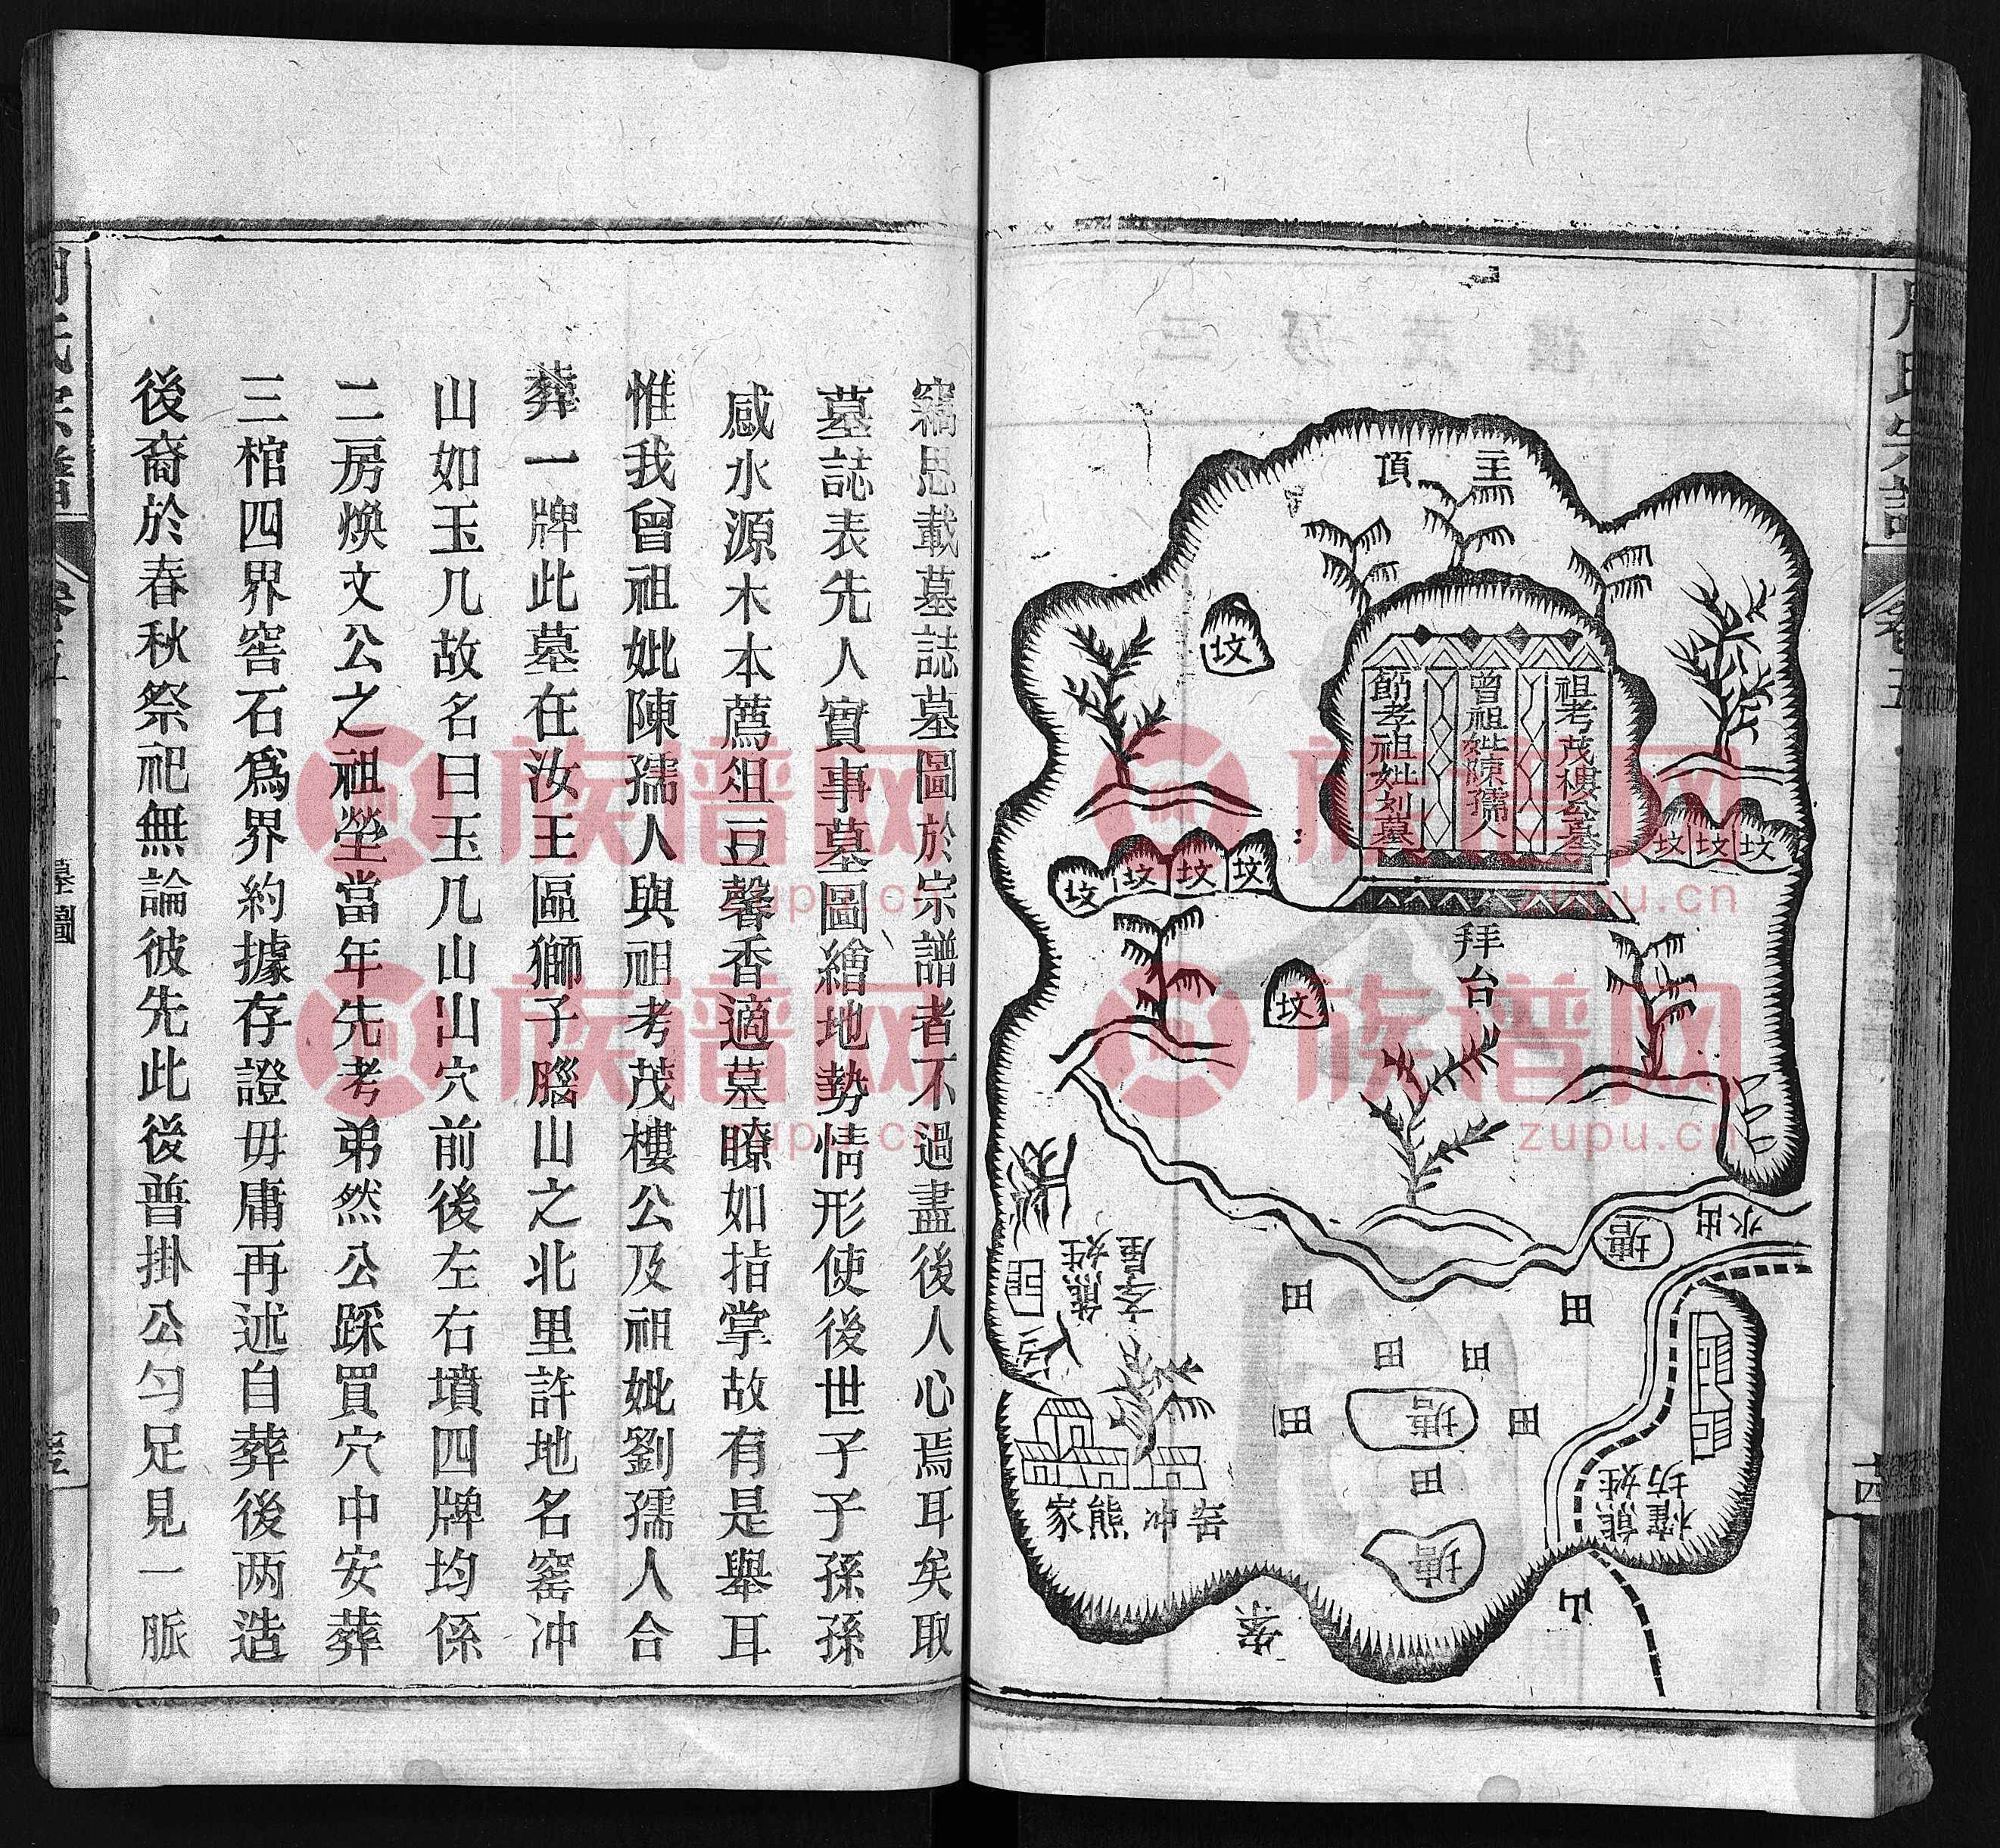 周氏宗譜
卷五
十四
主頂
祖考茂樓公墓
曾祖妣陳孺人
節孝祖妣刘墓
坟
坟
坟
坟
坟
坟
坟
坟
坟
拜台
水出
塘
熊姓
李屋
田
田
田
田
田
田
田
塘
塘
熊姓
榨坊
岩冲熊家
案
山
竊思載墓誌墓圖於宗譜者不過盡後人心焉耳矣取
墓誌表先人實事墓圖繪地勢情形使後世子子孫孫
感水源木本薦俎豆馨香適墓瞭如指掌故有是舉耳
惟我曾祖妣陳孺人與祖考茂樓公及祖妣劉孺人合
葬一牌此墓在汝王區獅子腦山之北里許地名窰冲
山如玉几故名曰玉几山山穴前後左右墳四牌均係
二房煥文公之祖塋當年先考弟然公踩買穴中安葬
三棺四界窖石爲界約據存證毋庸再述自葬後两造
後裔於春秋祭祀無論彼先此後普掛公匀足見一脈
周氏宗譜
卷五
墓圖
族谱网
zupu.cn
族谱网
zupu.cn
族谱网
zupu.cn
族谱网
zupu.cn